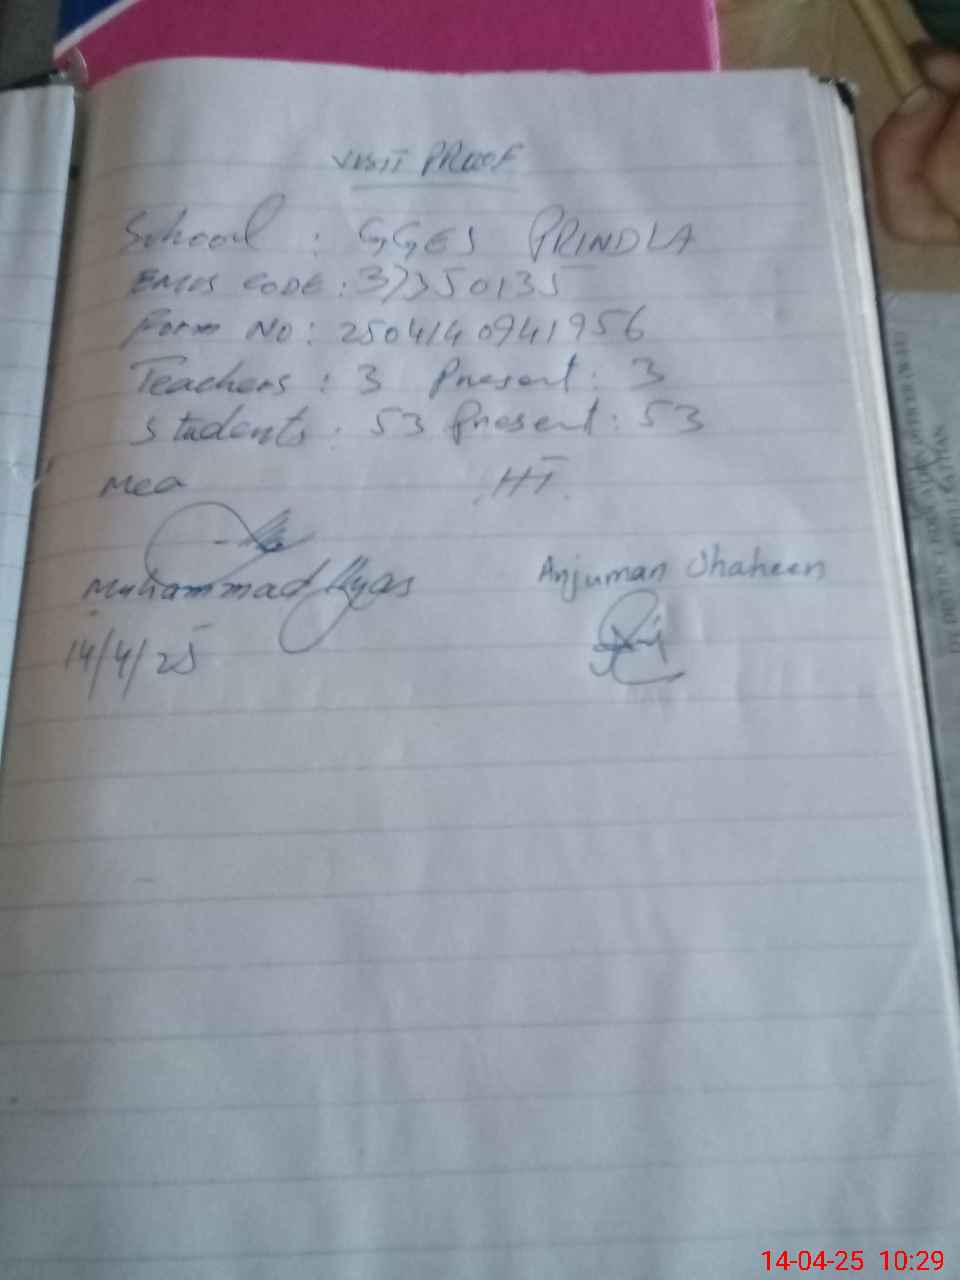 VISIT PROOF
School : GGES PRINDLA
EMIS CODE : 37350135
Form No : 2504140941956
Teachers : 3 Present : 3
Students : 53 Present : 53
Mea HT.
Muhammad Ilyas Anjuman Shaheen
14/4/25
14-04-25 10:29